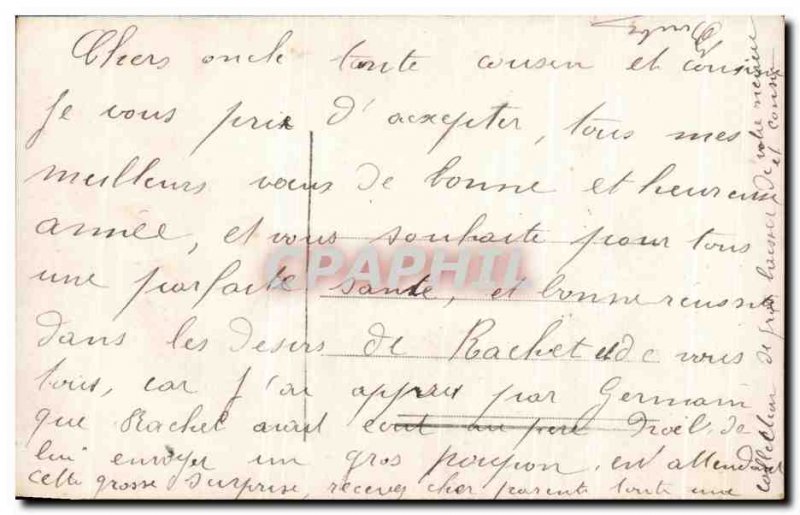 Chers oncle tante cousin et cousine
Je vous prie d'accepter, tous mes
meilleurs voeus de bonne et heureuse
année, et vous souhaite pour tous
une parfaite santé, et bonne réussite
dans les desirs de Rachel et de vous
tous, car j'ai appris par Germain
que Rachel avait écrit au père Noël de
lui envoyer un gros poupon, en attendant
cette grosse surprise, recevez cher parents toute une
collection de gros baisers de votre neveu
et cousin
CPAPHIL